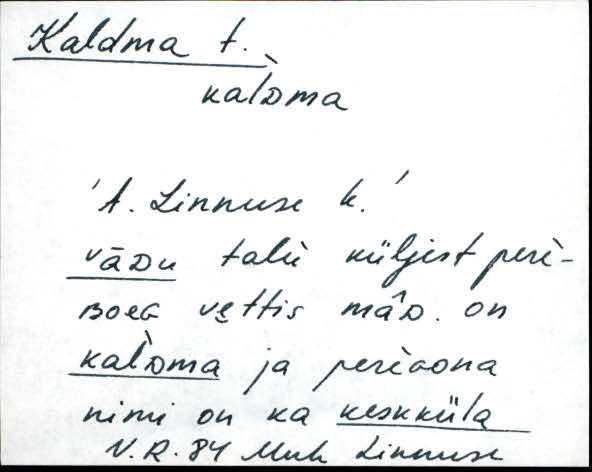 Kaldma t.
kal̀ᴅma
'A. Linnuse k.'
vāᴅu talu küljest peri-
ʙoeɢ vęttis mâᴅ. on
kal̀ᴅma ja perìoona
nimi on ka keskküla
V.R. 84 Muh Linnuse